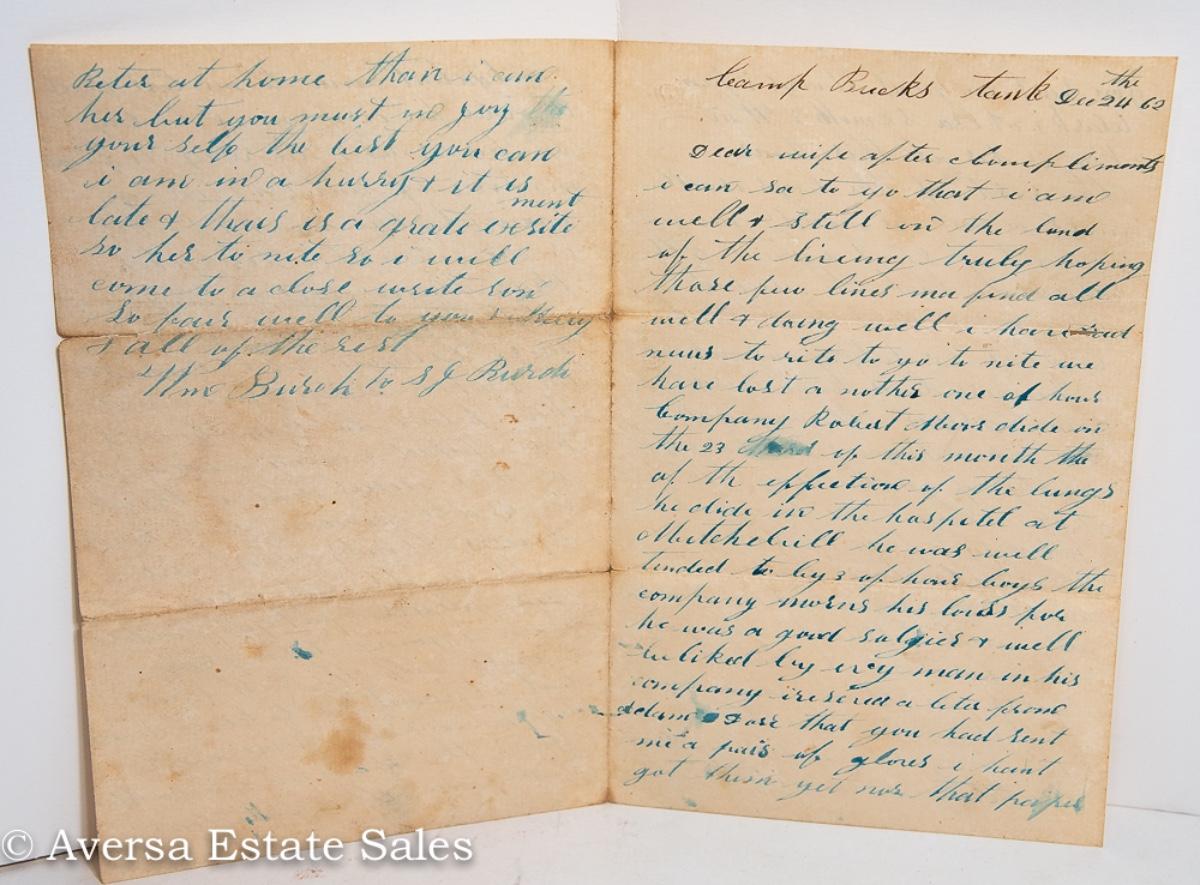 Camp Bucks tank Dec the 24 62
Dear wife after Compliments
i can sa to yo that i am
well & still in the land
of the living truly hoping
those few lines ma find all
well & doing well i have
nuus to rite to yo to nite we
have lost a nother one of hour
Company Robert Moor dide on
the 23 of this month the
of the effection of the lungs
he dide in the hospitel at
Mitchelvill he was well
tended to by 3 of hour boys the
company morns his louss for
he was a good solgier & well
be liked by evry man in his
company i reseved a leter from
adam that you had sent
me a pair of gloves i haint
got them yet nor that paper
Beter at home than i can
her but you must in joy the
your self the best you can
i am in a hurry & it is
late & thair is a grate exsitement
so her to nite so i will
come to a close write son
So fair well to you &
& all of the rest
Wm Burch to S J Burch
© Aversa Estate Sales